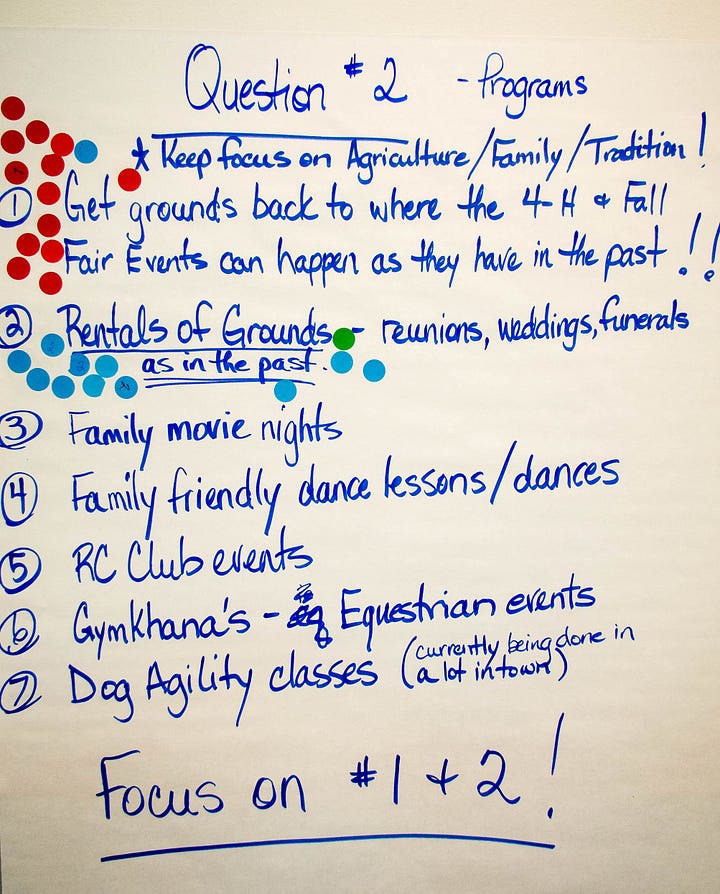 Question #2 - Programs
* Keep focus on Agriculture/Family/Tradition!
① Get grounds back to where the 4-H & Fall
Fair Events can happen as they have in the past!!
② Rentals of Grounds - reunions, weddings, funerals
as in the past.
③ Family movie nights
④ Family friendly dance lessons/dances
⑤ RC Club events
⑥ Gymkhana's - Equestrian events
⑦ Dog Agility classes (currently being done in
a lot in town)
Focus on #1 + 2!